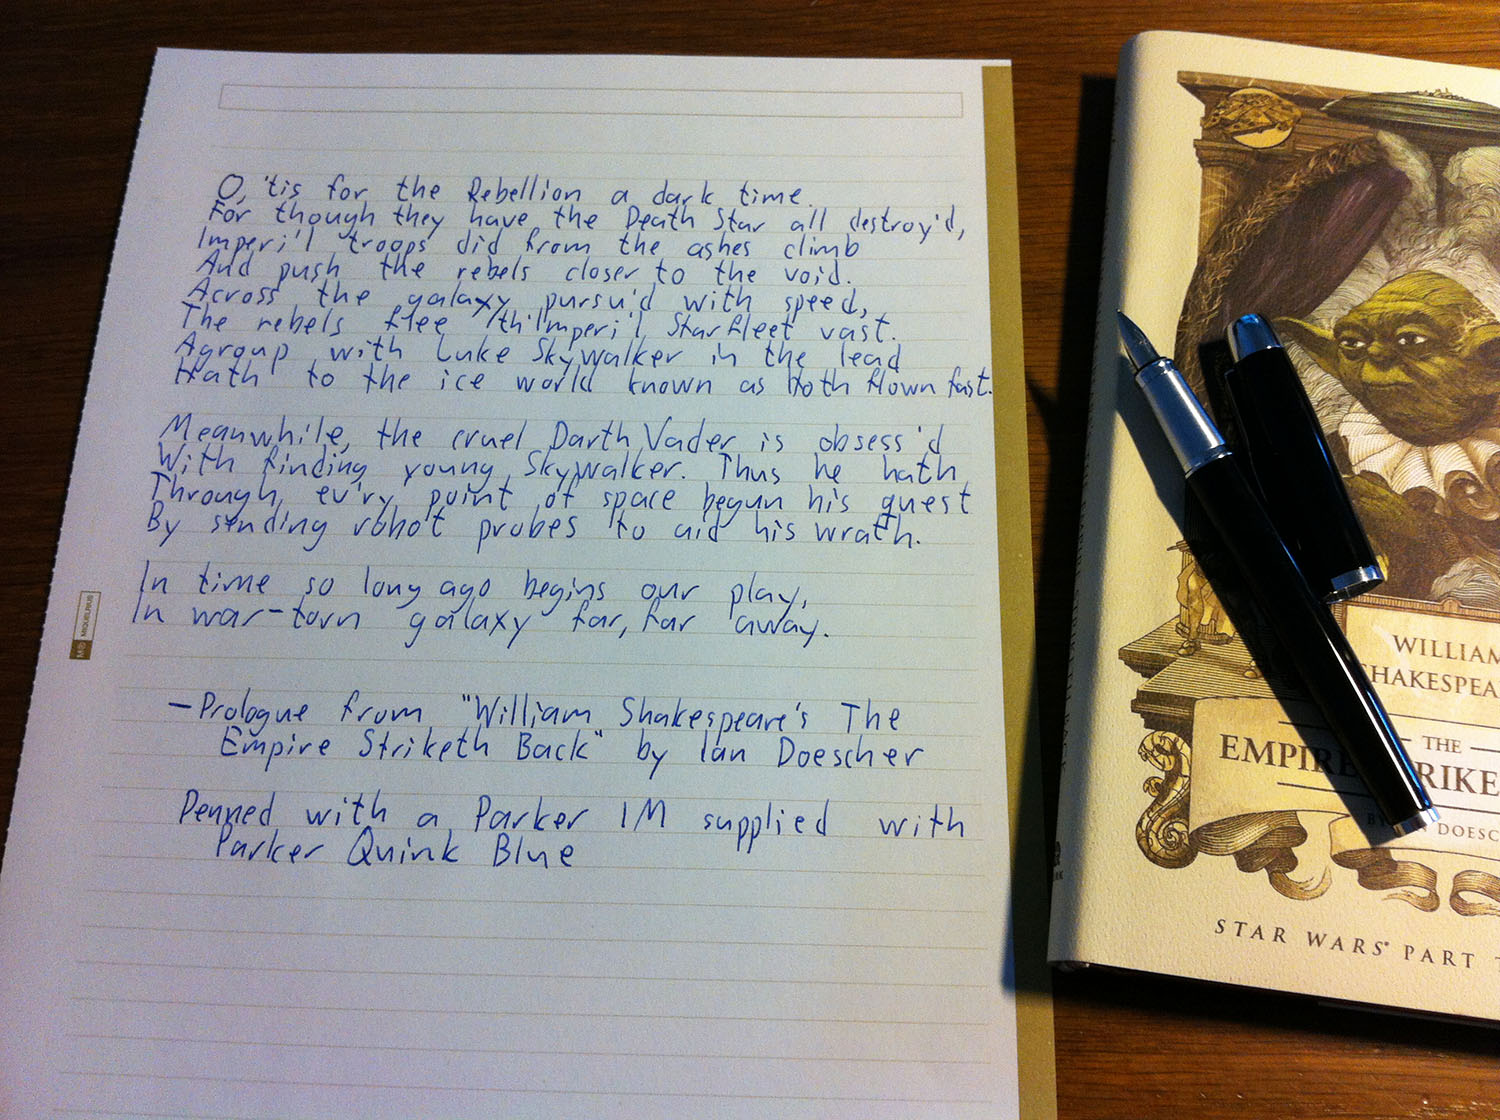 O, 'tis for the Rebellion a dark time.
For though they have the Death Star all destroy'd,
Imperi'l troops did from the ashes climb
And push the rebels closer to the void.
Across the galaxy pursu'd with speed,
The rebels flee th'Imperi'l Starfleet vast.
A group with Luke Skywalker in the lead
Hath to the ice world known as Hoth flown fast.
Meanwhile, the cruel Darth Vader is obsess'd
With finding young Skywalker. Thus he hath
Through ev'ry point of space begun his quest
By sending robot probes to aid his wrath.
In time so long ago begins our play,
In war-torn galaxy far, far away.
—Prologue from "William Shakespeare's The
Empire Striketh Back" by Ian Doescher
Penned with a Parker IM supplied with
Parker Quink Blue
MIQUELRIUS
WILLIAM
SHAKESPEA
THE
EMPIRE STRIKE
DOESC
STAR WARS® PART